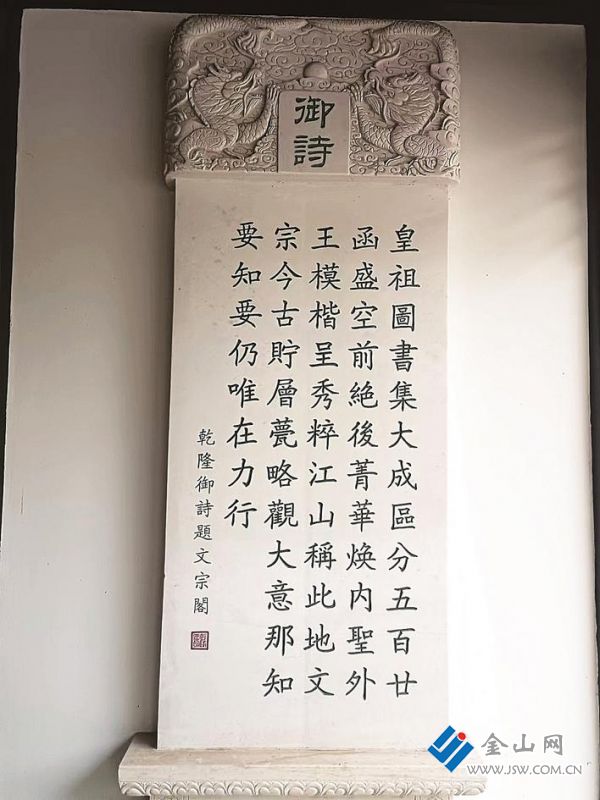 御詩
皇祖圖書集大成區分五百廿
函盛空前絕後菁華煥内聖外
王模楷呈秀粹江山稱此地文
宗今古貯層甍略觀大意那知
要知要仍唯在力行
乾隆御詩題文宗閣
金山网
WWW.JSW.COM.CN